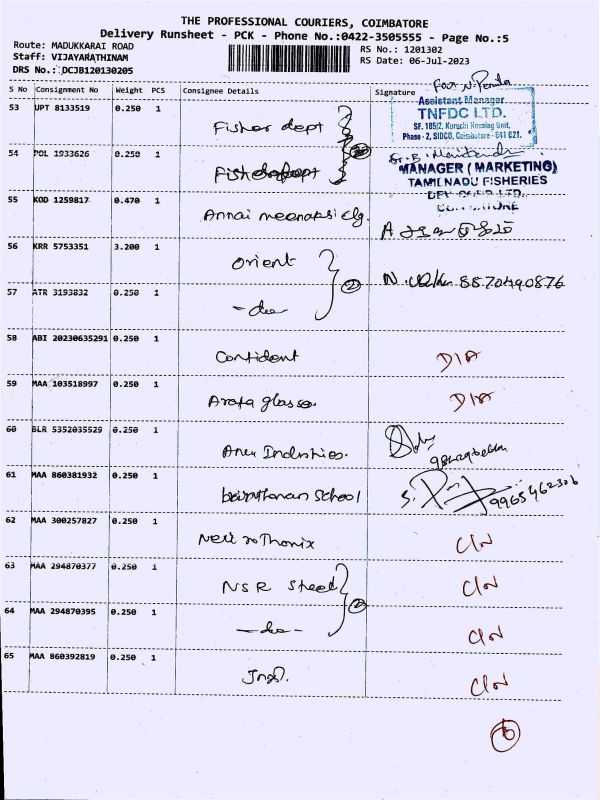 THE PROFESSIONAL COURIERS, COIMBATORE
Delivery Runsheet - PCK - Phone No.:0422-3505555 - Page No.:5
Route: MADUKKARAI ROAD
RS No.: 1201302
Staff: VIJAYARATHINAM
RS Date: 06-Jul-2023
DRS No.: DCJB120130205
S No Consignment No Weight PCS Consignee Details Signature
For
Assistant Manager
TNFDC LTD.
SF. 185/2, Kurachi Housing Unit,
Phase - 2, SIDCO, Coimbatore - 641 021.
53 UPT 8133519 0.250 1 Fisher dept
54 POL 1933626 0.250 1
MANAGER (MARKETING)
TAMILNADU FISHERIES
55 KOD 1259817 0.470 1 Annai meenaksi
56 KRR 5753351 3.200 1 Orient
2
8870490876
57 ATR 3193832 0.250 1 -do-
58 ABI 20230635291 0.250 1 Confident D/A
59 MAA 103518997 0.250 1 D/A
60 BLR 5352035529 0.250 1 Industries.
61 MAA 860381932 0.250 1 School
9965462306
62 MAA 300257827 0.250 1 C/N
63 MAA 294870377 0.250 1 NSR Steel C/N
2
64 MAA 294870395 0.250 1 -do- C/N
65 MAA 860392819 0.250 1 C/N
6